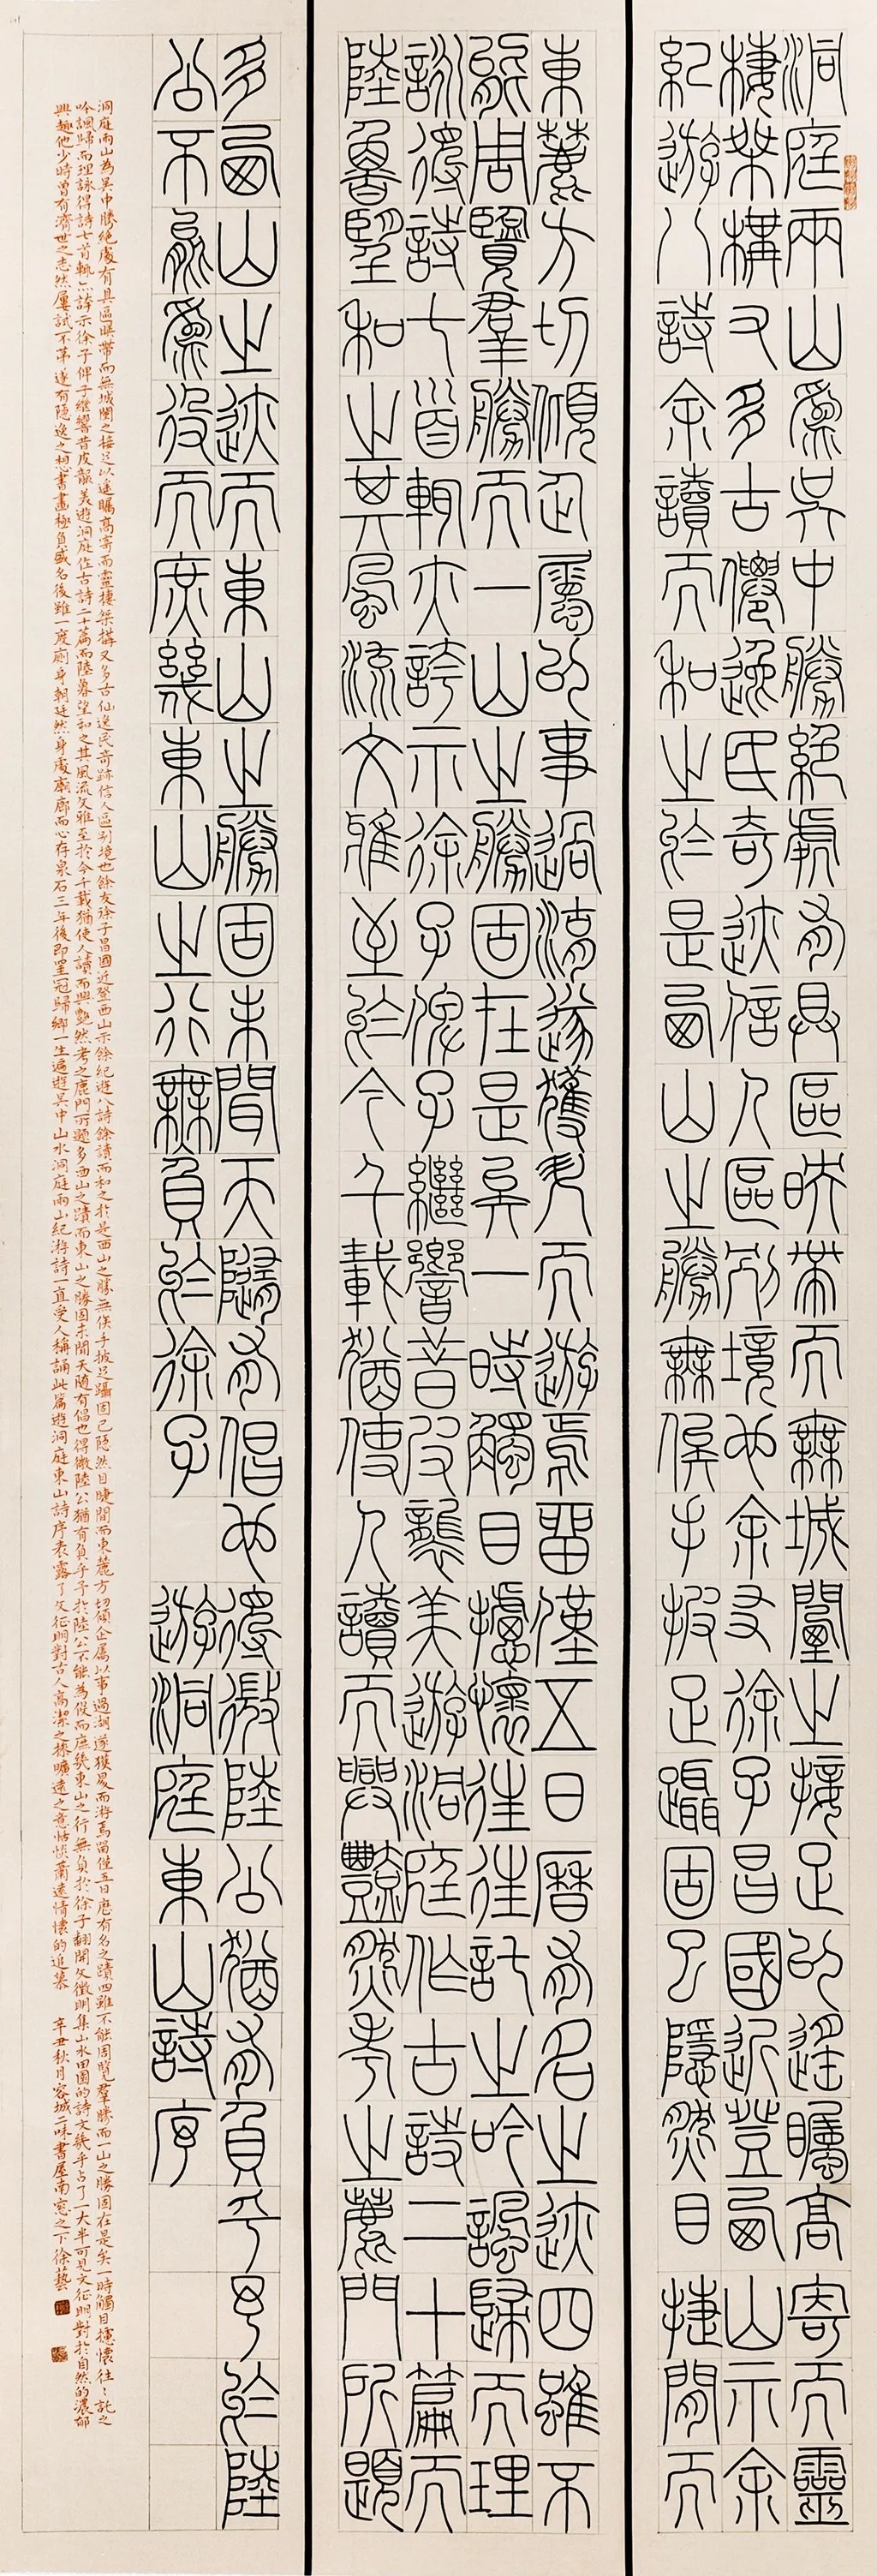 洞庭兩山為吳中勝絕處有具區映帶而無城闉之接足以遙矚高寄而靈
棲桀構又多古僊逸民奇迹信人區別境也余友徐子昌國近登西山示余
紀遊八詩余讀而和之於是西山之勝無俟手披足躡固已隱然目捷間而
東麓方切傾企屬以事過湖遂獲升而遊焉留僅五日曆有名之迹四雖不
能周覽羣勝而一山之勝固在是矣一時觸目攄懷往往託之吟諷歸而理
詠得詩七首輒亦誇示徐子俾子繼響昔皮襲美遊洞庭作古詩二十篇而
陸魯望和之其風流文雅至於今千載猶使人讀而興豔然考之麓門所題
多西山之迹而東山之勝固未聞天隨有倡也得微陸公猶有負乎予於陸
公不能為役而庶幾東山之行無負於徐子 遊洞庭東山詩序
洞庭兩山為吳中勝絕處有具區映帶而無城闉之接足以遙矚高寄而靈棲桀構又多古仙逸民奇跡信人區別境也餘友徐子昌國近登西山示餘紀遊八詩餘讀而和之於是西山之勝無俟手披足躡固已隱然目睫間而東麓方切傾企屬以事過湖遂獲升而游焉留僅五日歷有名之蹟四雖不能周覽羣勝而一山之勝固在是矣一時觸目攄懷往々託之
吟諷歸而理詠得詩七首輒亦誇示徐子俾子繼響昔皮龍美遊洞庭作古詩二十篇而陸魯望和之其風流文雅至於今千載猶使人讀而興艷然考之鹿門所題多西山之蹟而東山之勝固未聞天隨有倡也得微陸公猶有負乎予於陸公不能為役而庶幾東山之行無負於徐子翻開文徵明集山水田園的詩文幾乎占了一大半可見文征明對於自然的濃郁
興趣他少時曾有濟世之志然屢試不第遂有隱逸之想書畫極負盛名後雖一度廁身朝廷然身處廟廊而心存泉石三年後即罣冠歸鄉一生遍遊吳中山水洞庭兩山紀游詩一直受人稱誦此篇遊洞庭東山詩序表露了文征明對古人高潔之操曠遠之意恬淡蕭遠情懷的追慕 辛丑秋月容城二味書屋南窗之下徐藝